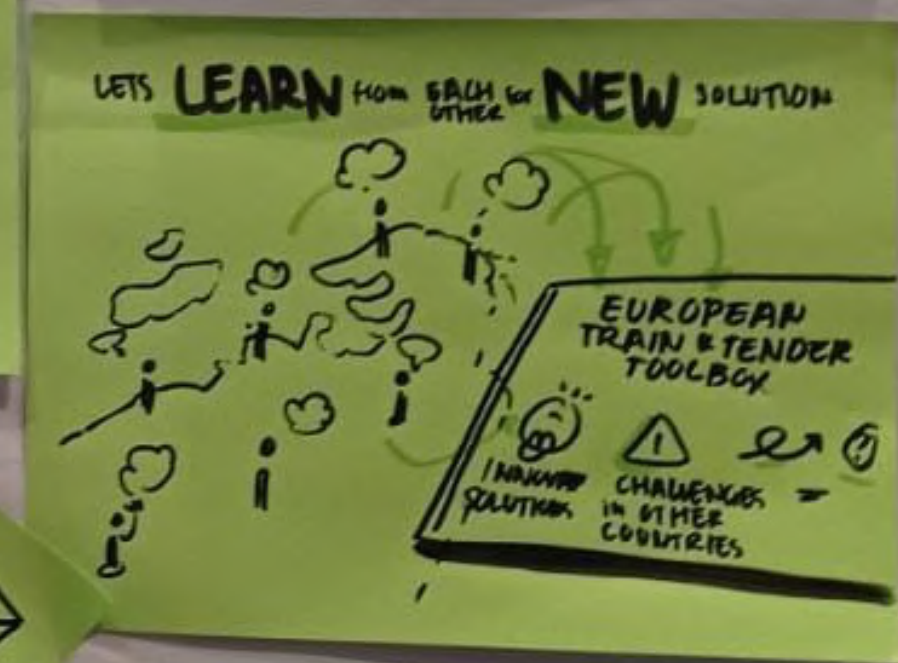 LETS LEARN from EACH OTHER for NEW SOLUTION
EUROPEAN
TRAIN & TENDER
TOOLBOX
SOLUTIONS
CHALLENGES
in OTHER
COUNTRIES